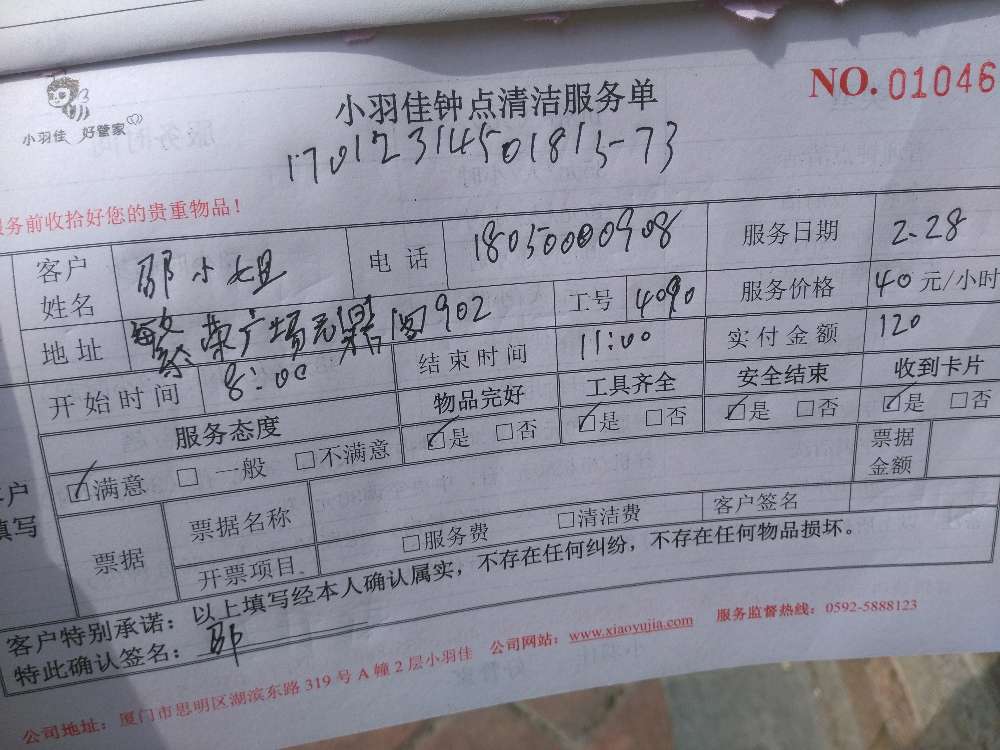 小羽佳 好管家
小羽佳钟点清洁服务单
NO.01046
17012314501813-73
服务前收拾好您的贵重物品！
客户姓名 邵小姐 电话 18050000908 服务日期 2.28
地址 繁荣广场元鼎阁902 工号 4090 服务价格 40元/小时
开始时间 8:00 结束时间 11:00 实付金额 120
服务态度 物品完好 工具齐全 安全结束 收到卡片
☑满意 □一般 □不满意 ☑是 □否 ☑是 □否 ☑是 □否 ☑是 □否
票据 票据名称 票据金额
开票项目 □服务费 □清洁费 客户签名
客户特别承诺：以上填写经本人确认属实，不存在任何纠纷，不存在任何物品损坏。
特此确认签名：邵
公司地址：厦门市思明区湖滨东路319号A幢2层小羽佳 公司网站：www.xiaoyujia.com 服务监督热线：0592-5888123